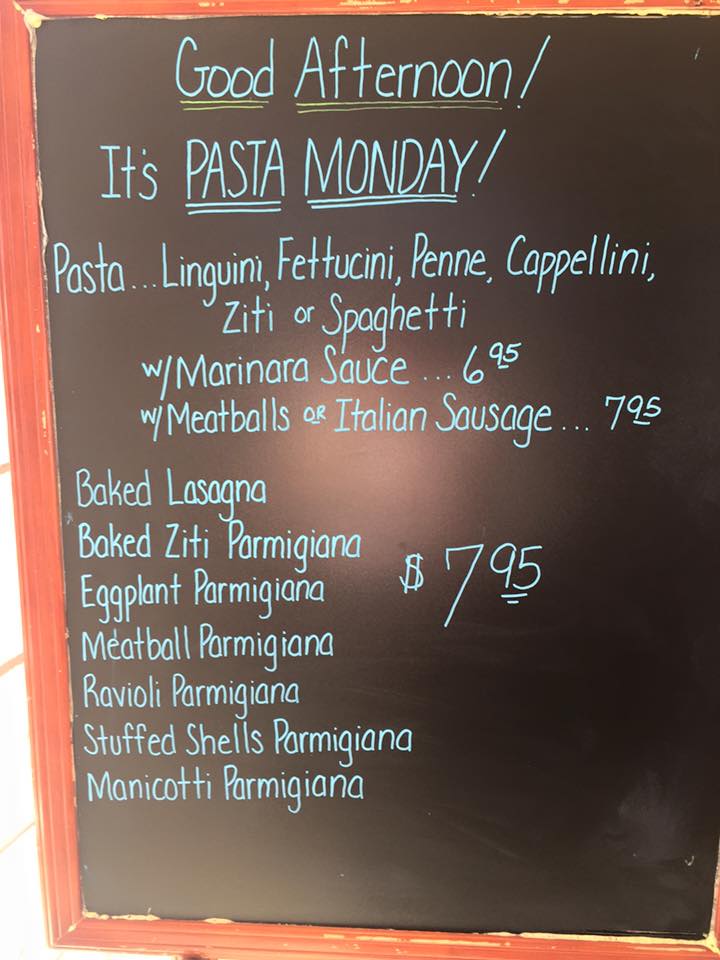 Good Afternoon!
It's PASTA MONDAY!
Pasta...Linguini, Fettucini, Penne, Cappellini,
Ziti or Spaghetti
w/Marinara Sauce ... 6 95
w/Meatballs OR Italian Sausage ... 7 95
Baked Lasagna
Baked Ziti Parmigiana
Eggplant Parmigiana
$ 7 95
Meatball Parmigiana
Ravioli Parmigiana
Stuffed Shells Parmigiana
Manicotti Parmigiana